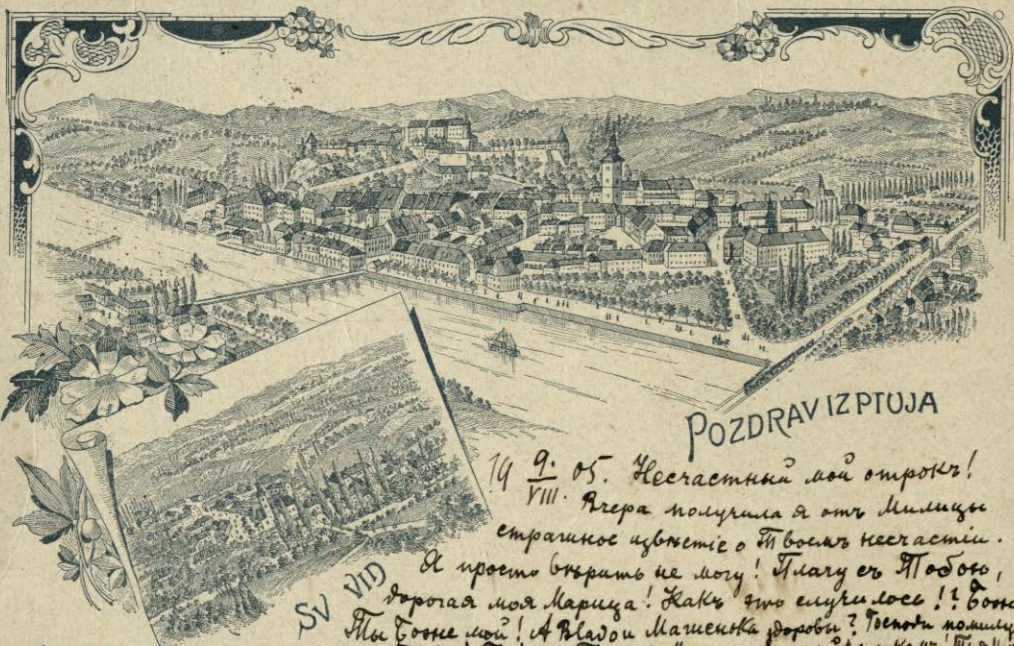 POZDRAV IZ PTUJA
SV VID
19 9./VIII. 05. Несчастный мой отрокъ!
Вчера получила я отъ Милицы
страшное извѣстіе о Твоемъ несчастіи.
Я просто вѣрить не могу! Плачу съ Тобою,
дорогая моя Марица! Какъ это случилось!! Боже
Ты Боже мой! А Владо и Машенька здоровы? Господи помилуй